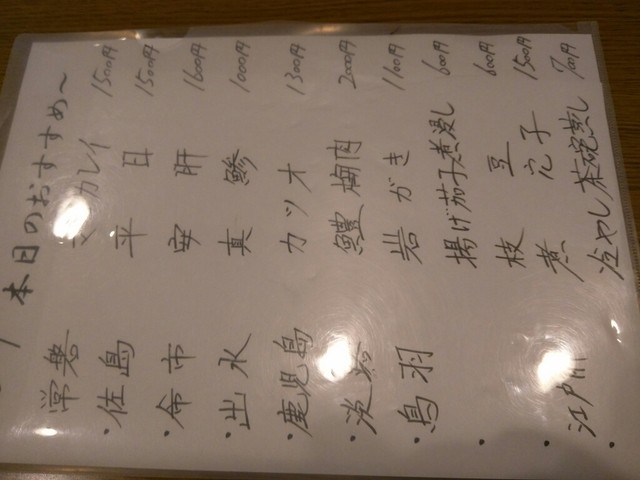 本日のおすすめ〜
常磐 カレイ 1500円
・佐島 平目 1500円
・余市 安肝 1600円
・出水 真鯵 1000円
・鹿児島 カツオ 1300円
・淡路 鱧梅肉 2000円
・鳥羽 岩がき 1100円
・揚げ茄子煮浸し 600円
・枝豆 600円
・江戸前 煮穴子 1500円
冷やし茶碗蒸し 700円